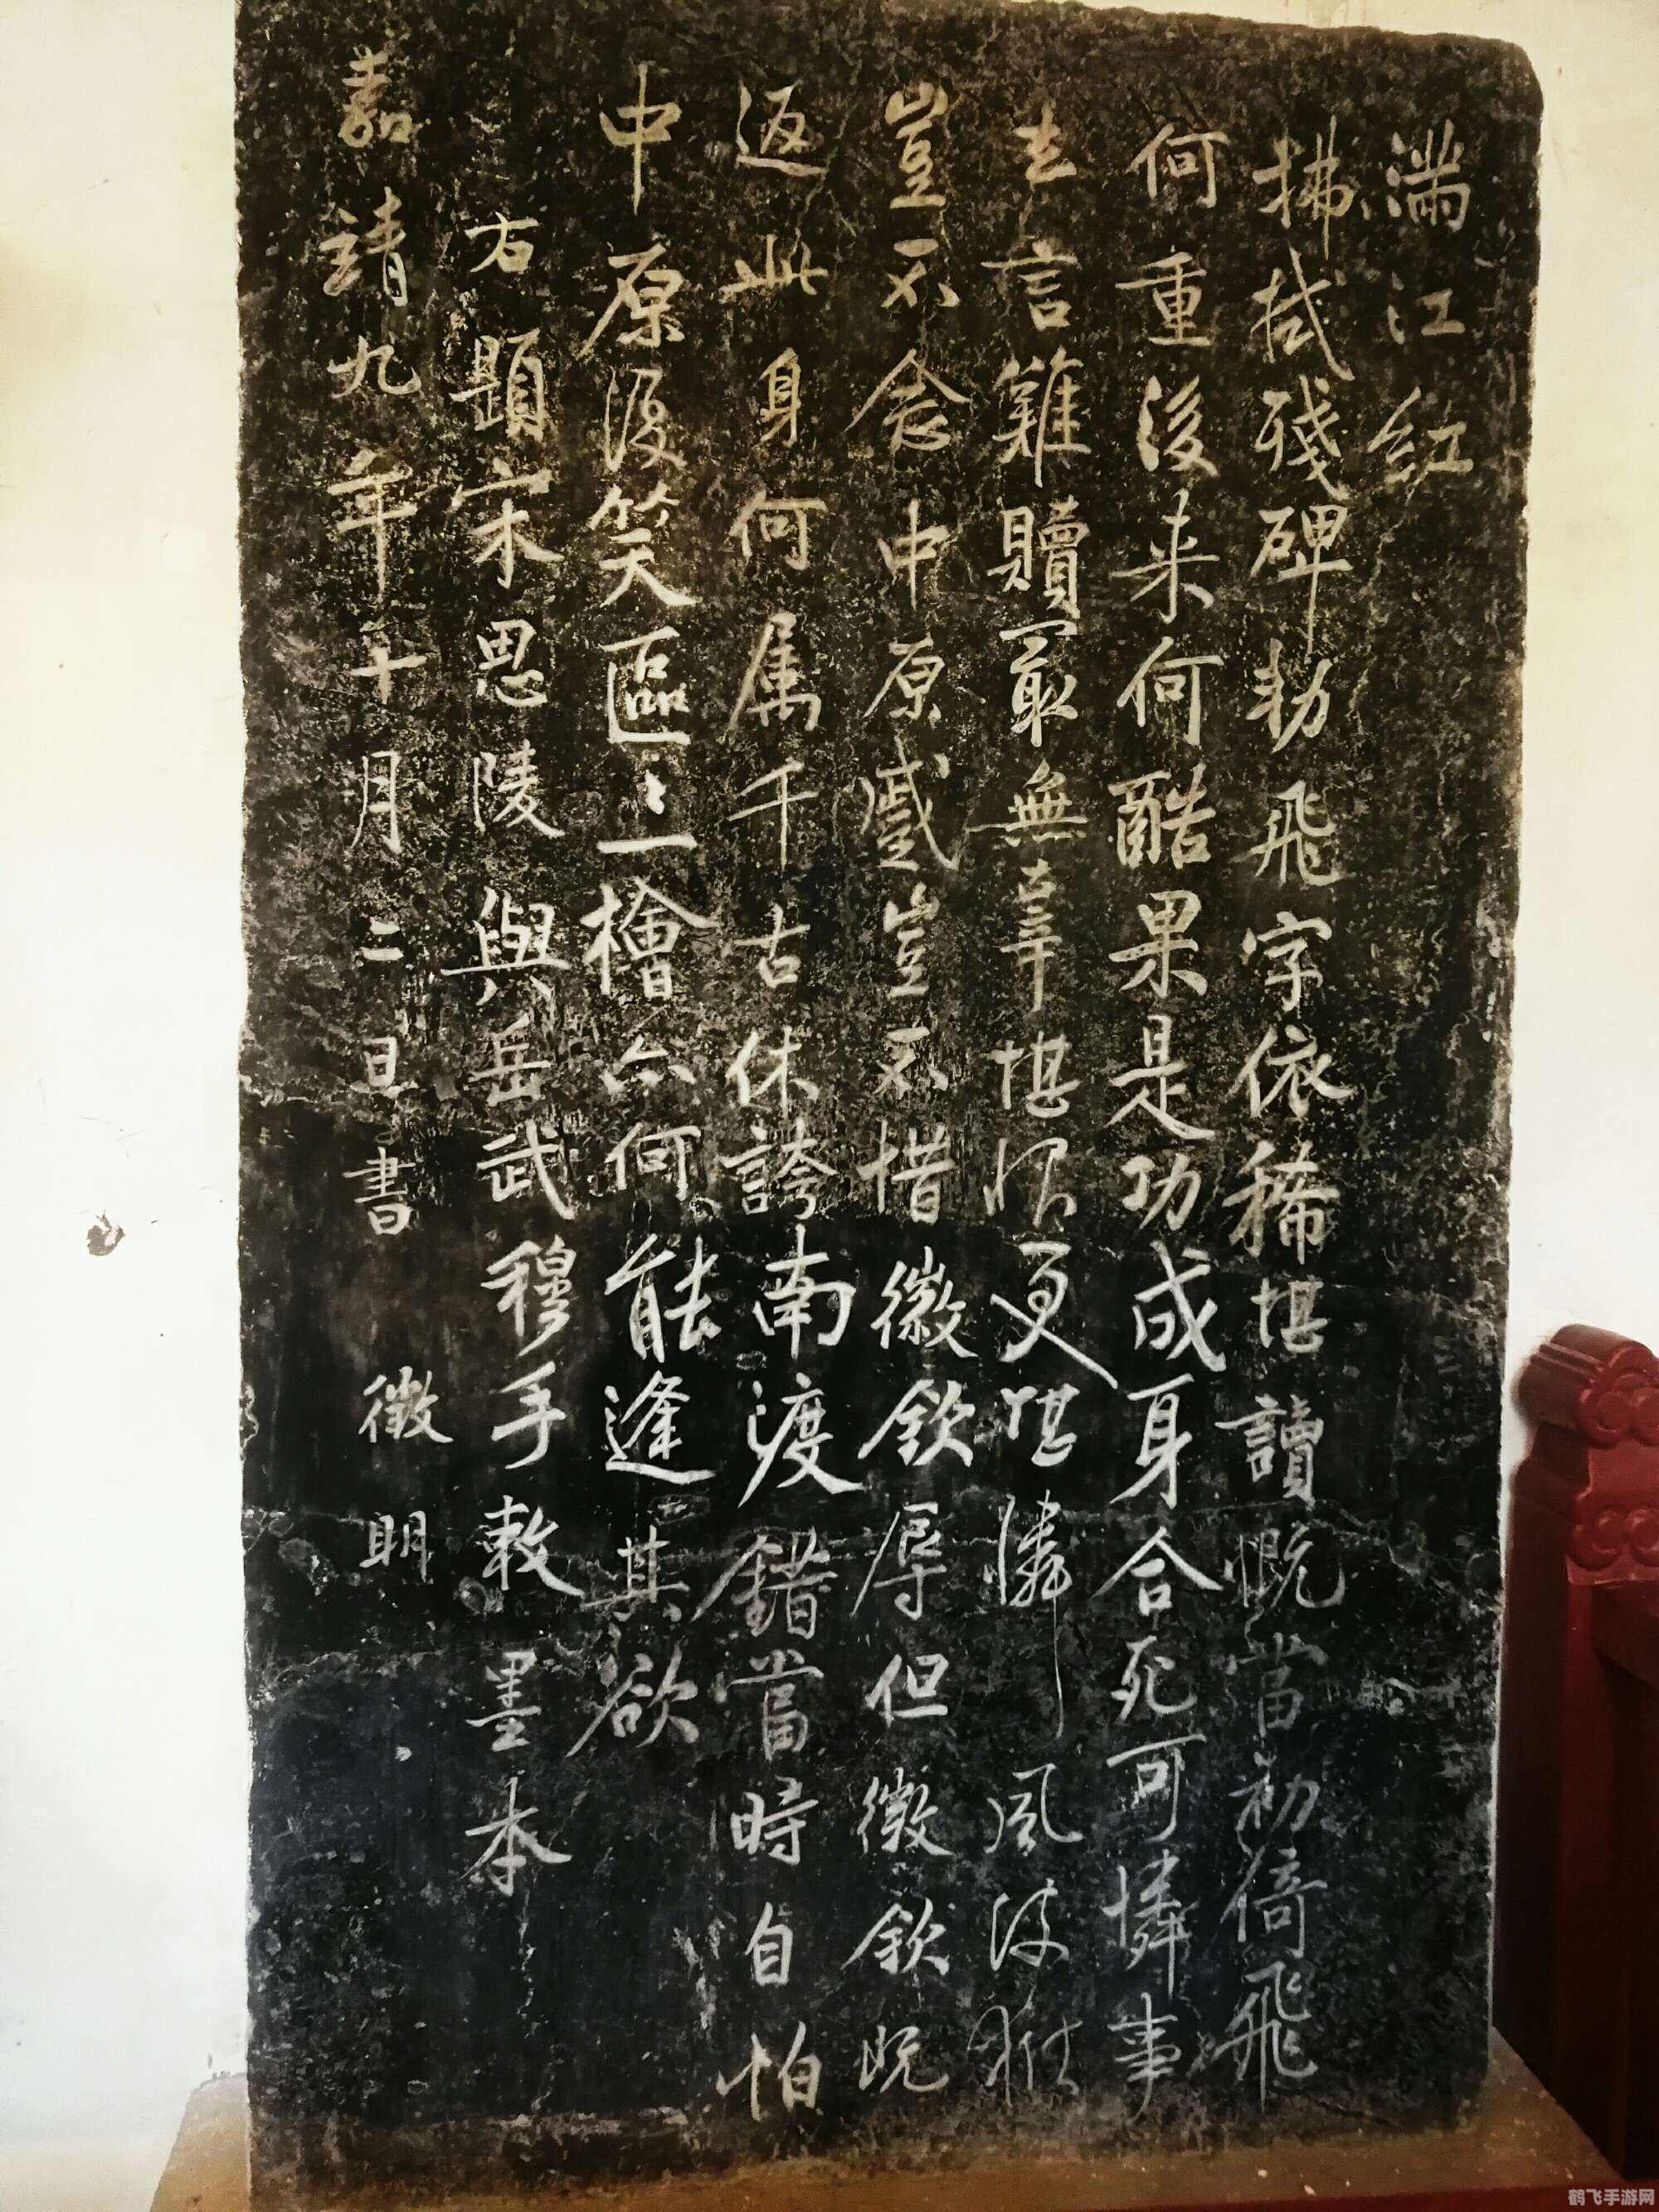 滿江紅
拂拭殘碑勅飛字依稀堪讀慨當初倚飛
何重後来何酷果是功成身合死可憐事
去言難贖最無辜堪恨更堪憐風波獄
豈不念中原蹙豈不惜徽欽辱但徽欽既
返此身何属千古休誇南渡錯當時自怕
中原復笑區〻一檜亦何能逢其欲
右題宋思陵與岳武穆手敕墨本
嘉靖九年十月二日書 徵明
鹤飞手游网